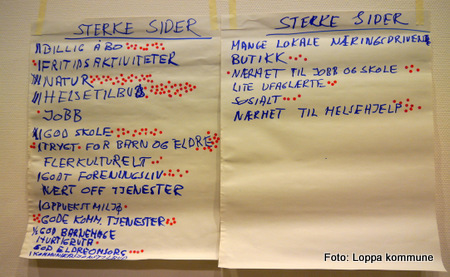 STERKE SIDER
BILLIG Å BO
FRITIDSAKTIVITETER
NATUR
HELSETILBUD
JOBB
GOD SKOLE
TRYGT FOR BARN OG ELDRE
FLERKULTURELT
GODT FORENINGSLIV
NÆRT OFF TJENESTER
OPPVEKSTMILJØ
GODE KOMM. TJENESTER
GOD BARNEHAGE
HURTIGRUTA
GOD ELDREOMSORG
STERKE SIDER
MANGE LOKALE NÆRINGSDRIVENDE
BUTIKK
NÆRHET TIL JOBB OG SKOLE
LITE UFAGLÆRTE
SOSIALT
NÆRHET TIL HELSEHJELP
Foto: Loppa kommune